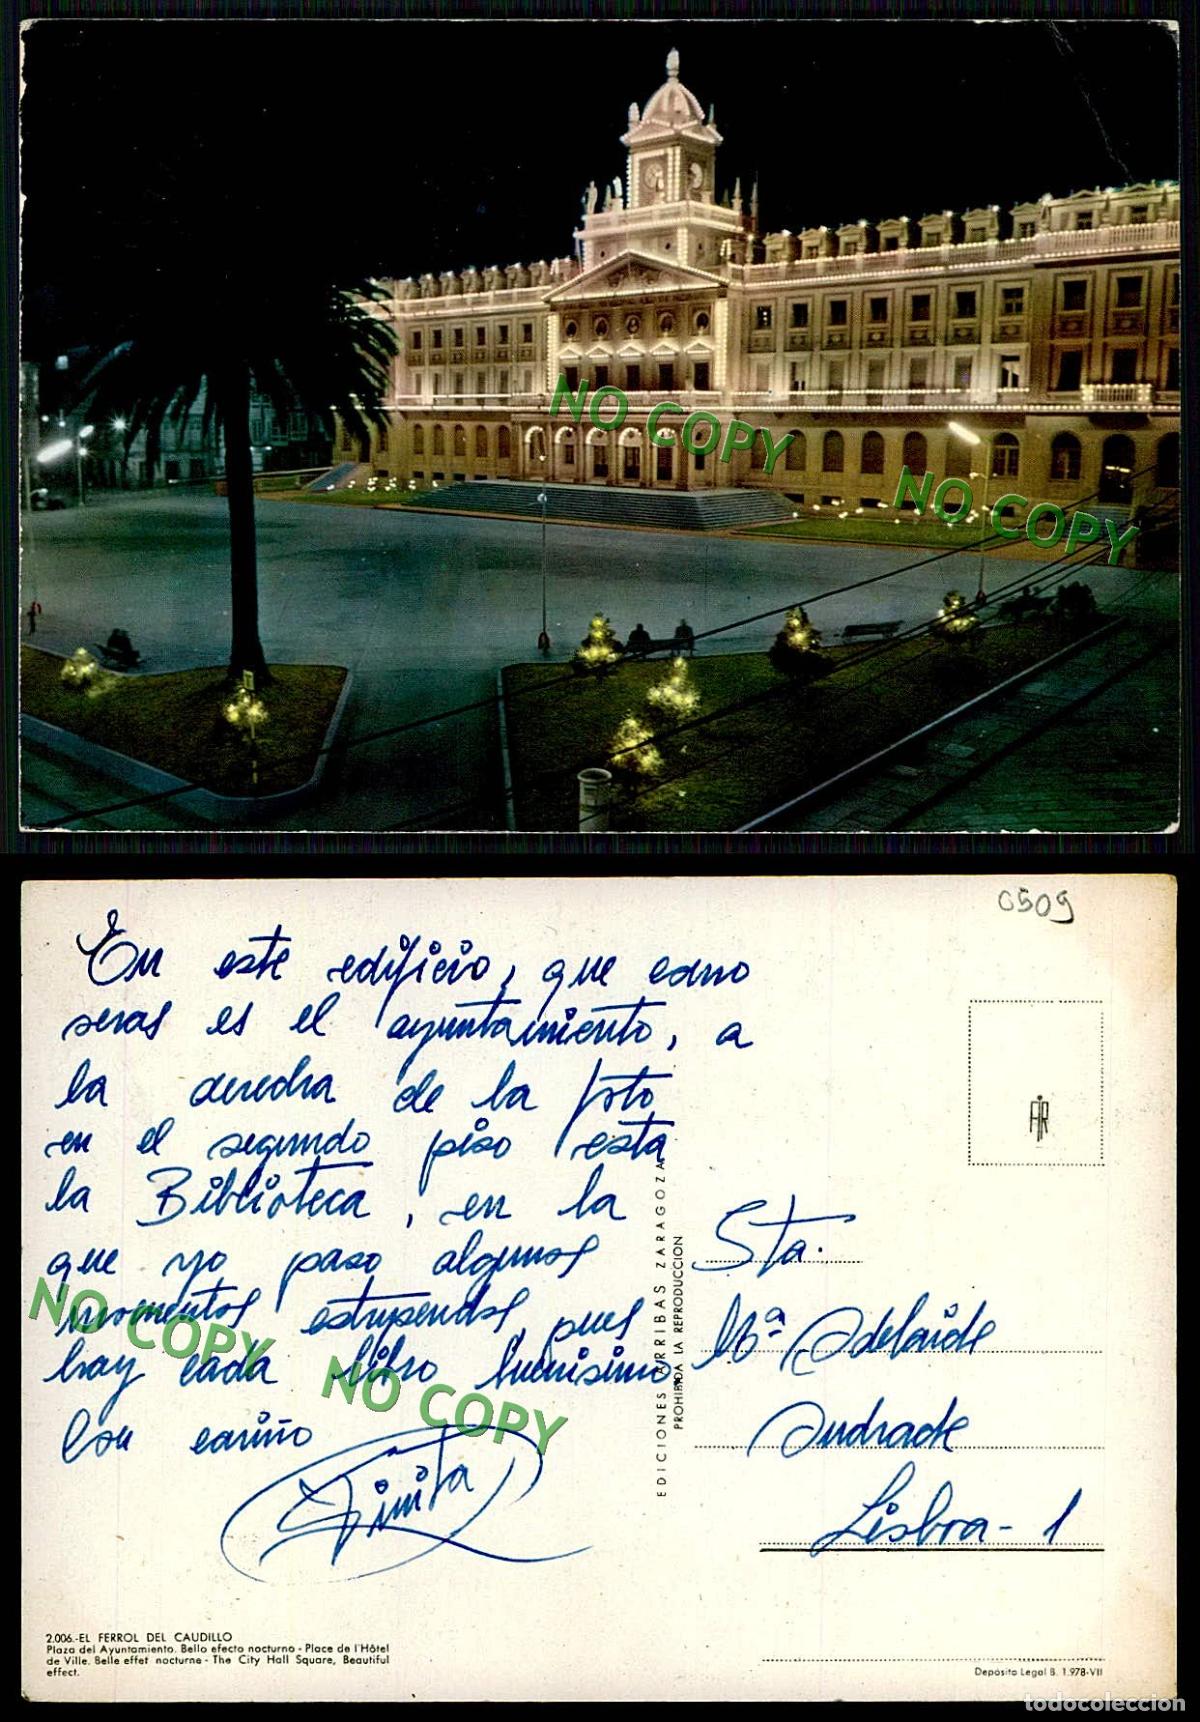 NO COPY
NO COPY
0509
En este edificio, que como
seras es el ayuntamiento, a
la derecha de la foto
en el segundo piso esta
la Biblioteca, en la
que yo paso algunos
momentos estupendos, pues
hay cada libro buenisimo
Con cariño
NO COPY
NO COPY
EDICIONES ARRIBAS ZARAGOZA
PROHIBIDA LA REPRODUCCION
Sta.
Mª Adelaide
Andrade
Lisboa - 1
2.006.-EL FERROL DEL CAUDILLO
Plaza del Ayuntamiento. Bello efecto nocturno - Place de l'Hôtel
de Ville. Belle effet nocturne - The City Hall Square, Beautiful
effect.
Depósito Legal B. 1.978-VII
todocoleccion